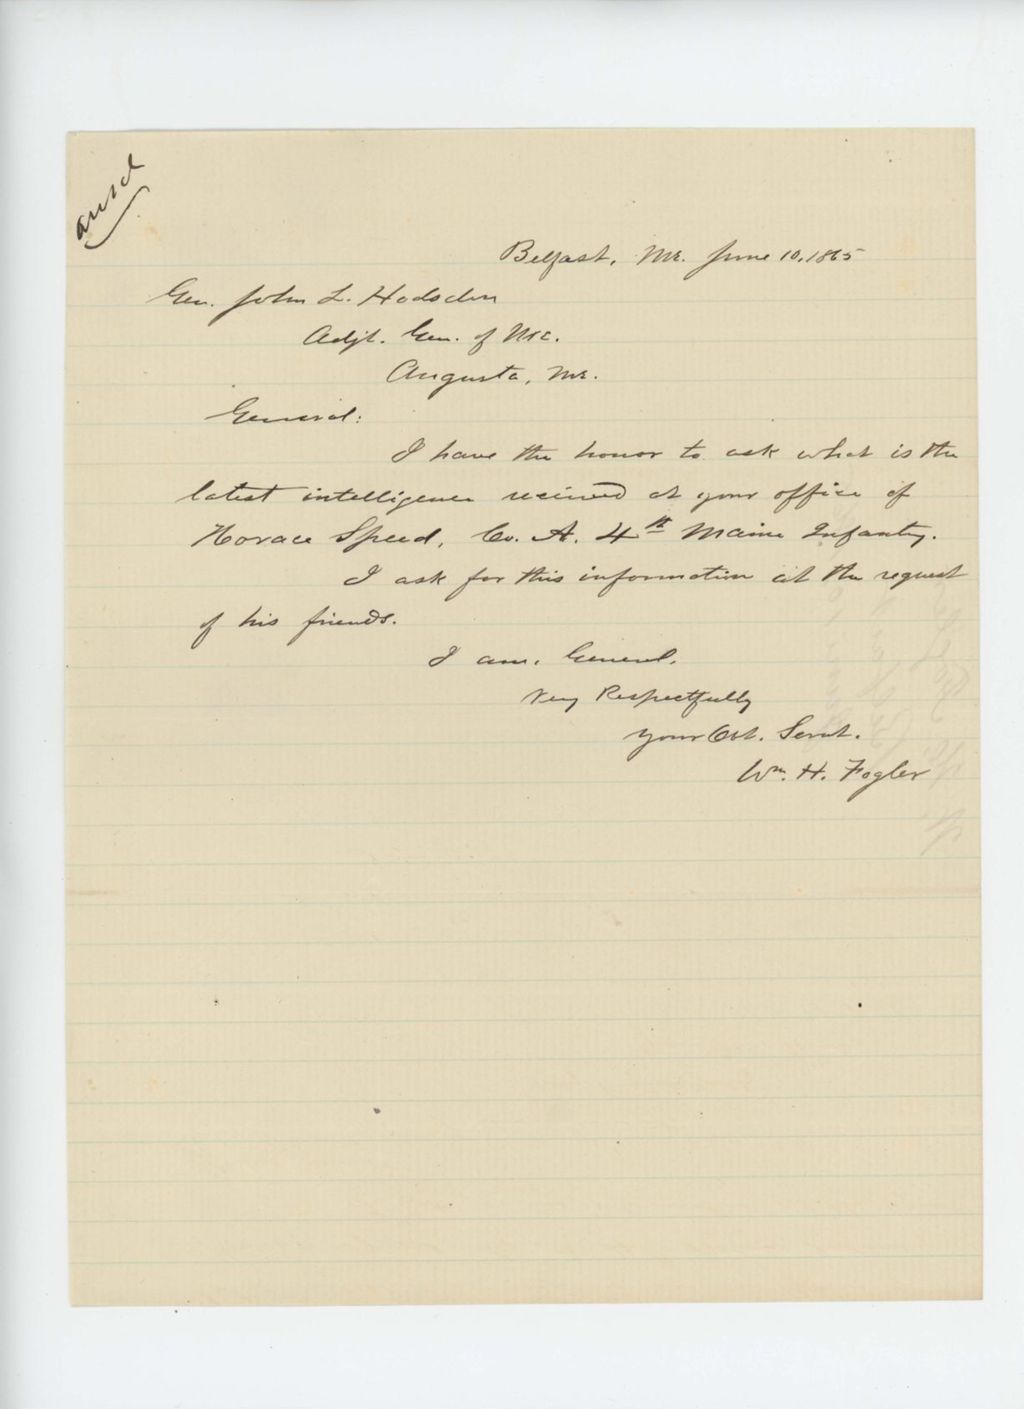 ansd
Belfast, Me. June 10, 1865
Gen. John L. Hodsdon
Adjt. Gen. of Me.
Augusta, Me.
General:
I have the honor to ask what is the
latest intelligence received at your office of
Horace Speed, Co. A. 4th Maine Infantry.
I ask for this information at the request
of his friends.
I am, General,
Very Respectfully
Your Obt. Servt.
Wm. H. Fogler